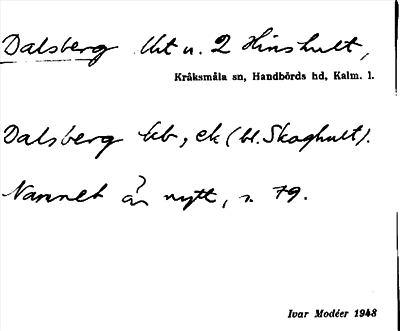 Dalsberg lht u. 2 Hinshult,
Kråksmåla sn, Handbörds hd, Kalm. l.
Dalsberg lb, ek (bl. Skoghult).
Namnet är nytt, s. 79.
Ivar Modéer 1943